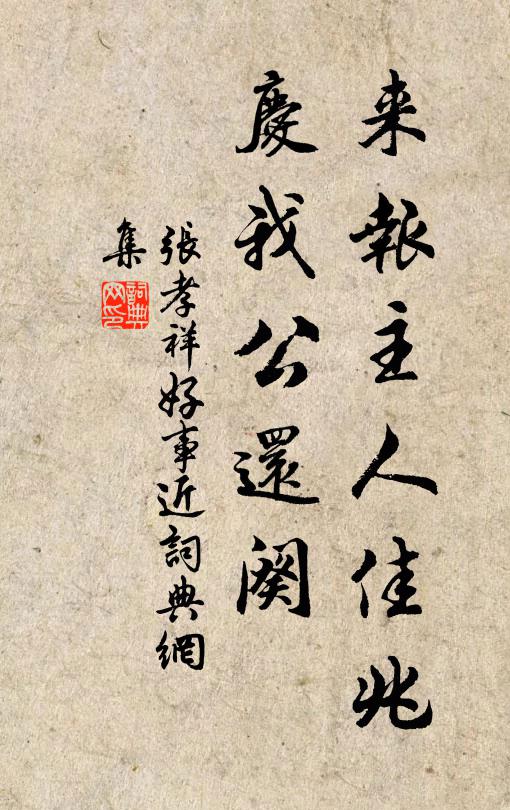 来報主人佳兆
慶我公還闕
張孝祥好事近詞典網
集
詞典
网印